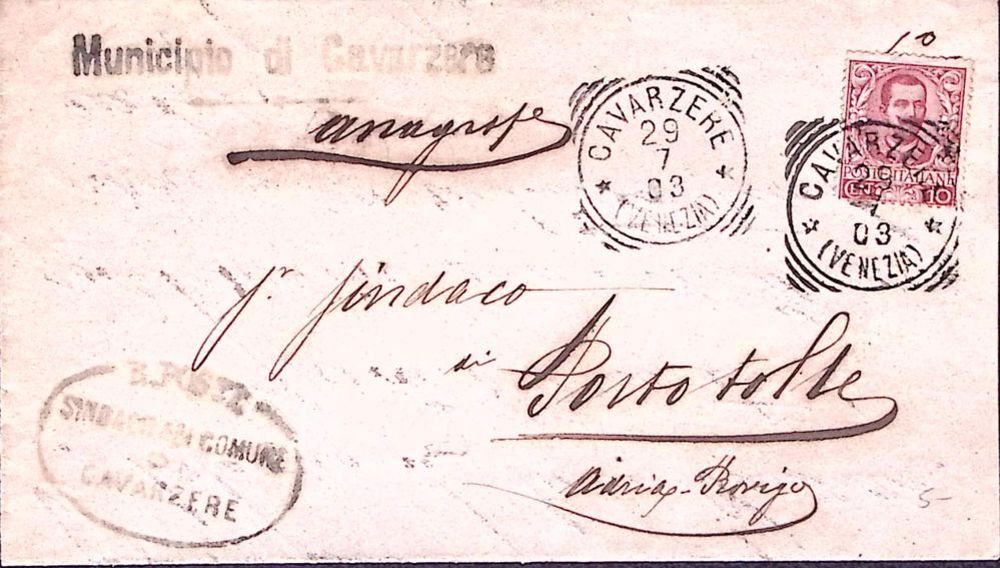 Municipio di Cavarzere
Anagrafe
CAVARZERE
29
7
03
(VENEZIA)
CAVARZERE
29
7
03
(VENEZIA)
POSTE ITALIANE
CENT. 10
10
Sindaco
di
Porto tolle
Adria - Rovigo
R. POSTE
SINDACO DEL COMUNE
DI
CAVARZERE
5